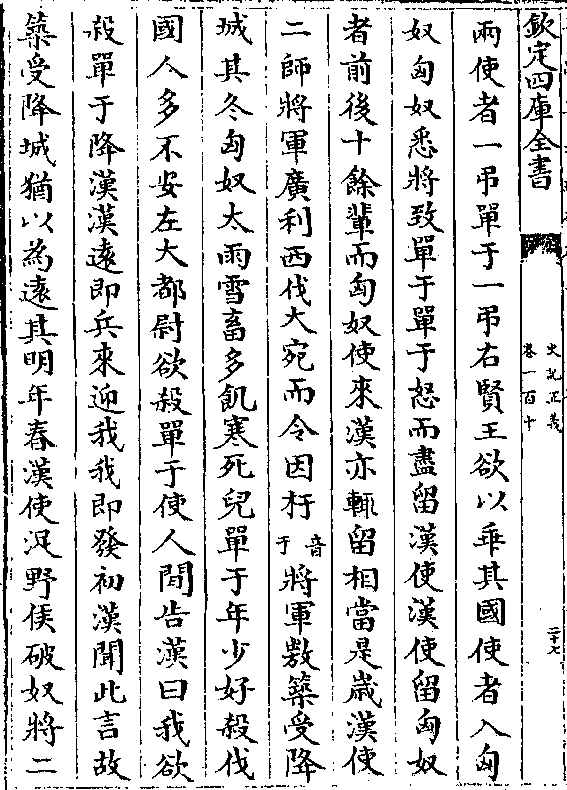 欽定四庫全書
史記正義
卷一百十
二十七
兩使者一弔單于一弔右賢王欲以乖其國使者入匈
奴匈奴悉將致單于單于怒而盡留漢使漢使留匈奴
者前後十餘輩而匈奴使來漢亦輒留相當是歲漢使
二師將軍廣利西伐大宛而令因杅音于將軍敖築受降
城其冬匈奴大雨雪畜多飢寒死兒單于年少好殺伐
國人多不安左大都尉欲殺單于使人間告漢曰我欲
殺單于降漢漢遠即兵來迎我我即發初漢聞此言故
築受降城猶以為遠其明年春漢使浞野侯破奴將二